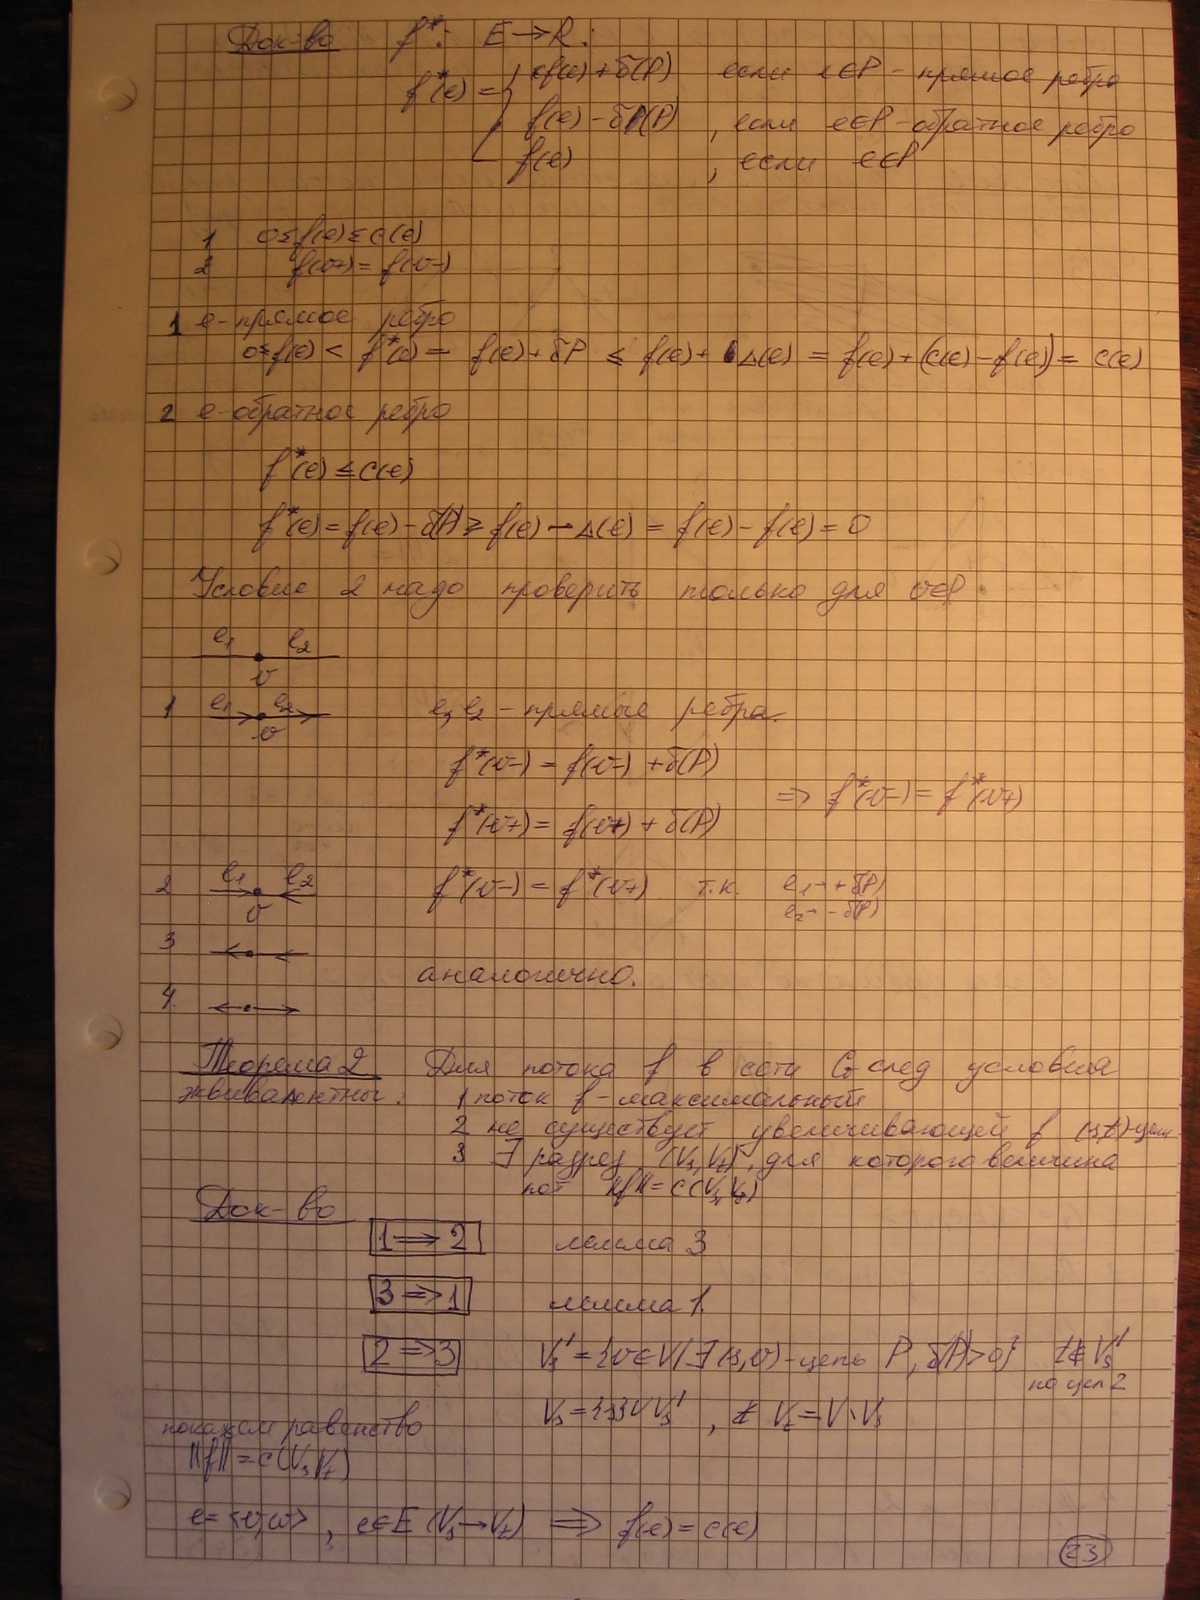 Док-во f*: E→R:
f*(e) = { f(e) + δ(P) если e∈P - прямое ребро
f(e) - δ(P) , если e∈P - обратное ребро
f(e) , если e∈P
1 0≤f(e)≤c(e)
2 f(v+) = f(v-)
1 e - прямое ребро
0≤f(e) < f*(e) = f(e) + δP ≤ f(e) + Δ(e) = f(e) + (c(e) - f(e)) = c(e)
2 e - обратное ребро
f*(e) ≤ c(e)
f*(e) = f(e) - δ(P) ≥ f(e) - Δ(e) = f(e) - f(e) = 0
Условие 2 надо проверить только для v∈P
e₁ e₂
v
1 e₁ e₂ e₁ e₂ - прямые ребра.
v
f*(v-) = f(v-) + δ(P)
=> f*(v-) = f*(v+)
f*(v+) = f(v+) + δ(P)
2 e₁ e₂ f*(v-) = f*(v+) т.к. e₁ → + δ(P)
v e₂ → - δ(P)
3
аналогично.
4.
Теорема 2 Для потока f в сети G след условия
эквивалентны: 1 поток f - максимальный
2 не существует увеличивающей f (s,t)-цепи
3 ∃ разрез (Vs, Vt), для которого величина
пот ||f|| = c(Vs, Vt)
Док-во
1 => 2 лемма 3
3 => 1 лемма 1.
2 => 3 Vs' = {v∈V | ∃ (s,v) - цепь P, δ(P)>0} t∉Vs'
по усл 2
Vs = {s} ∪ Vs' , Vt = V \ Vs
покажем равенство
||f|| = c(Vs, Vt)
e = <v,w> , e∈E (Vs→Vt) => f(e) = c(e)
23